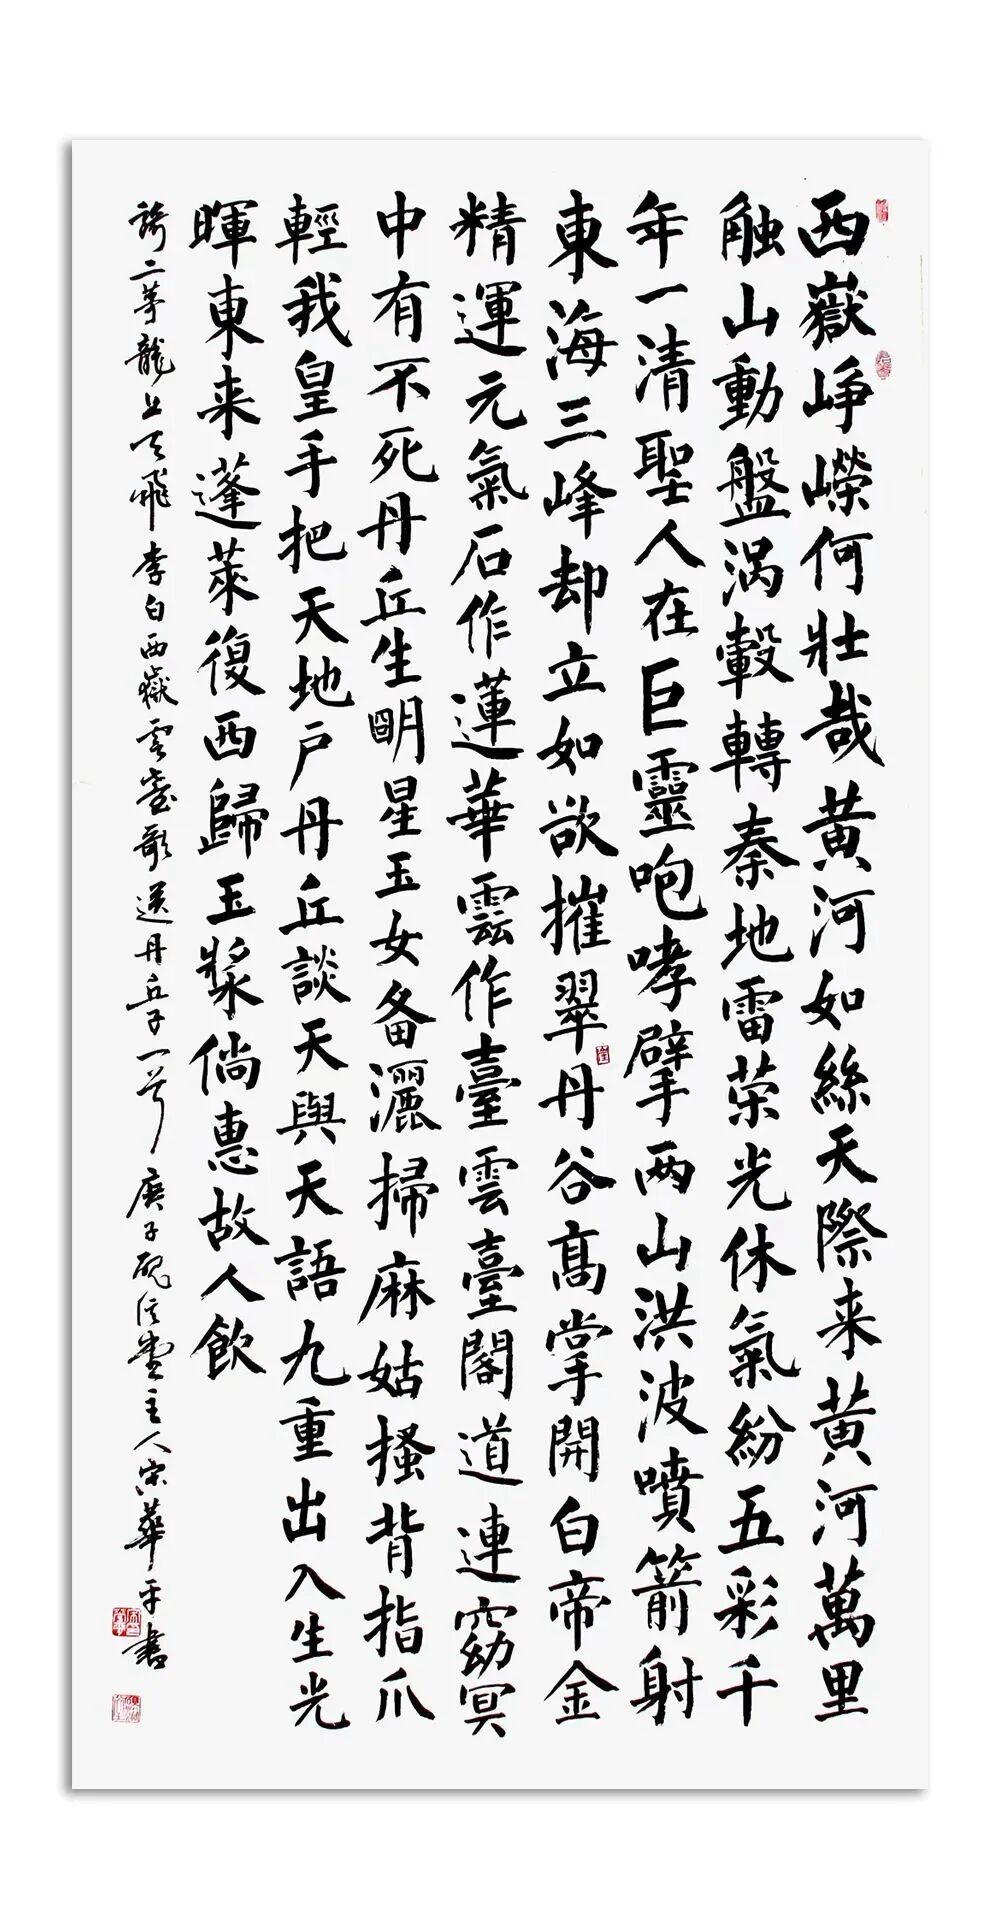 西嶽崢嶸何壯哉黃河如絲天際来黃河萬里
触山動盤涡轂轉秦地雷荣光休氣紛五彩千
年一清聖人在巨靈咆哮擘两山洪波噴箭射
東海三峰却立如欲摧翠丹谷高掌開白帝金
精運元氣石作蓮華雲作臺雲臺閣道連窈冥
中有不死丹丘生明星玉女备灑掃麻姑搔背指爪
輕我皇手把天地户丹丘談天與天語九重出入生光
暉東来蓬萊復西歸玉漿倘惠故人飲
騎二茅龍上天飛 李白西嶽雲臺歌送丹丘子一首 庚子 主人宋華平書